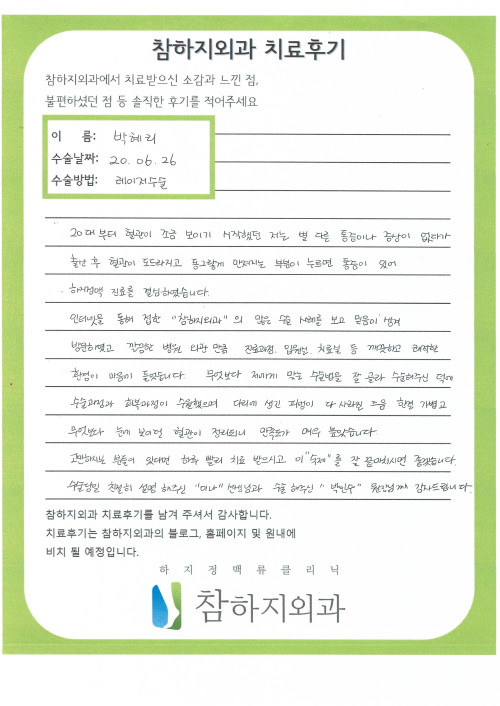 참하지외과 치료후기
참하지외과에서 치료받으신 소감과 느낀 점,
불편하셨던 점 등 솔직한 후기를 적어주세요
이 름: 박혜리
수술날짜: 20. 06. 26
수술방법: 레이저수술
20대부터 혈관이 조금 보이기 시작했던 저는 별 다른 통증이나 증상이 없다가
출산 후 혈관이 도드라지고 동그랗게 만져지는 부분이 누르면 통증이 있어
하지정맥 진료를 결심하였습니다.
인터넷을 통해 접한 "참하지외과"의 많은 수술 사례를 보고 믿음이 생겨
방문하였고 깔끔한 병원 외관 만큼 진료과정, 입원실, 치료실 등 깨끗하고 쾌적한
환경이 마음에 들었습니다. 무엇보다 저에게 맞는 수술법을 잘 골라 수술해주신 덕에
수술과정과 회복과정이 수월했으며 다리에 생긴 피멍이 다 사라진 지금 한결 가볍고
무엇보다 눈에 보이던 혈관이 정리되니 만족도가 매우 높았습니다
고민하시는 분들이 있다면 하루 빨리 치료 받으시고 이 "숙제"를 잘 끝마치시면 좋겠습니다.
수술당일 친절히 설명 해주신 "이나" 선생님과 수술 해주신 " 박인수" 원장님께 감사드립니다.
참하지외과 치료후기를 남겨 주셔서 감사합니다.
치료후기는 참하지외과의 블로그, 홈페이지 및 원내에
비치 될 예정입니다.
하지정맥류클리닉
참하지외과